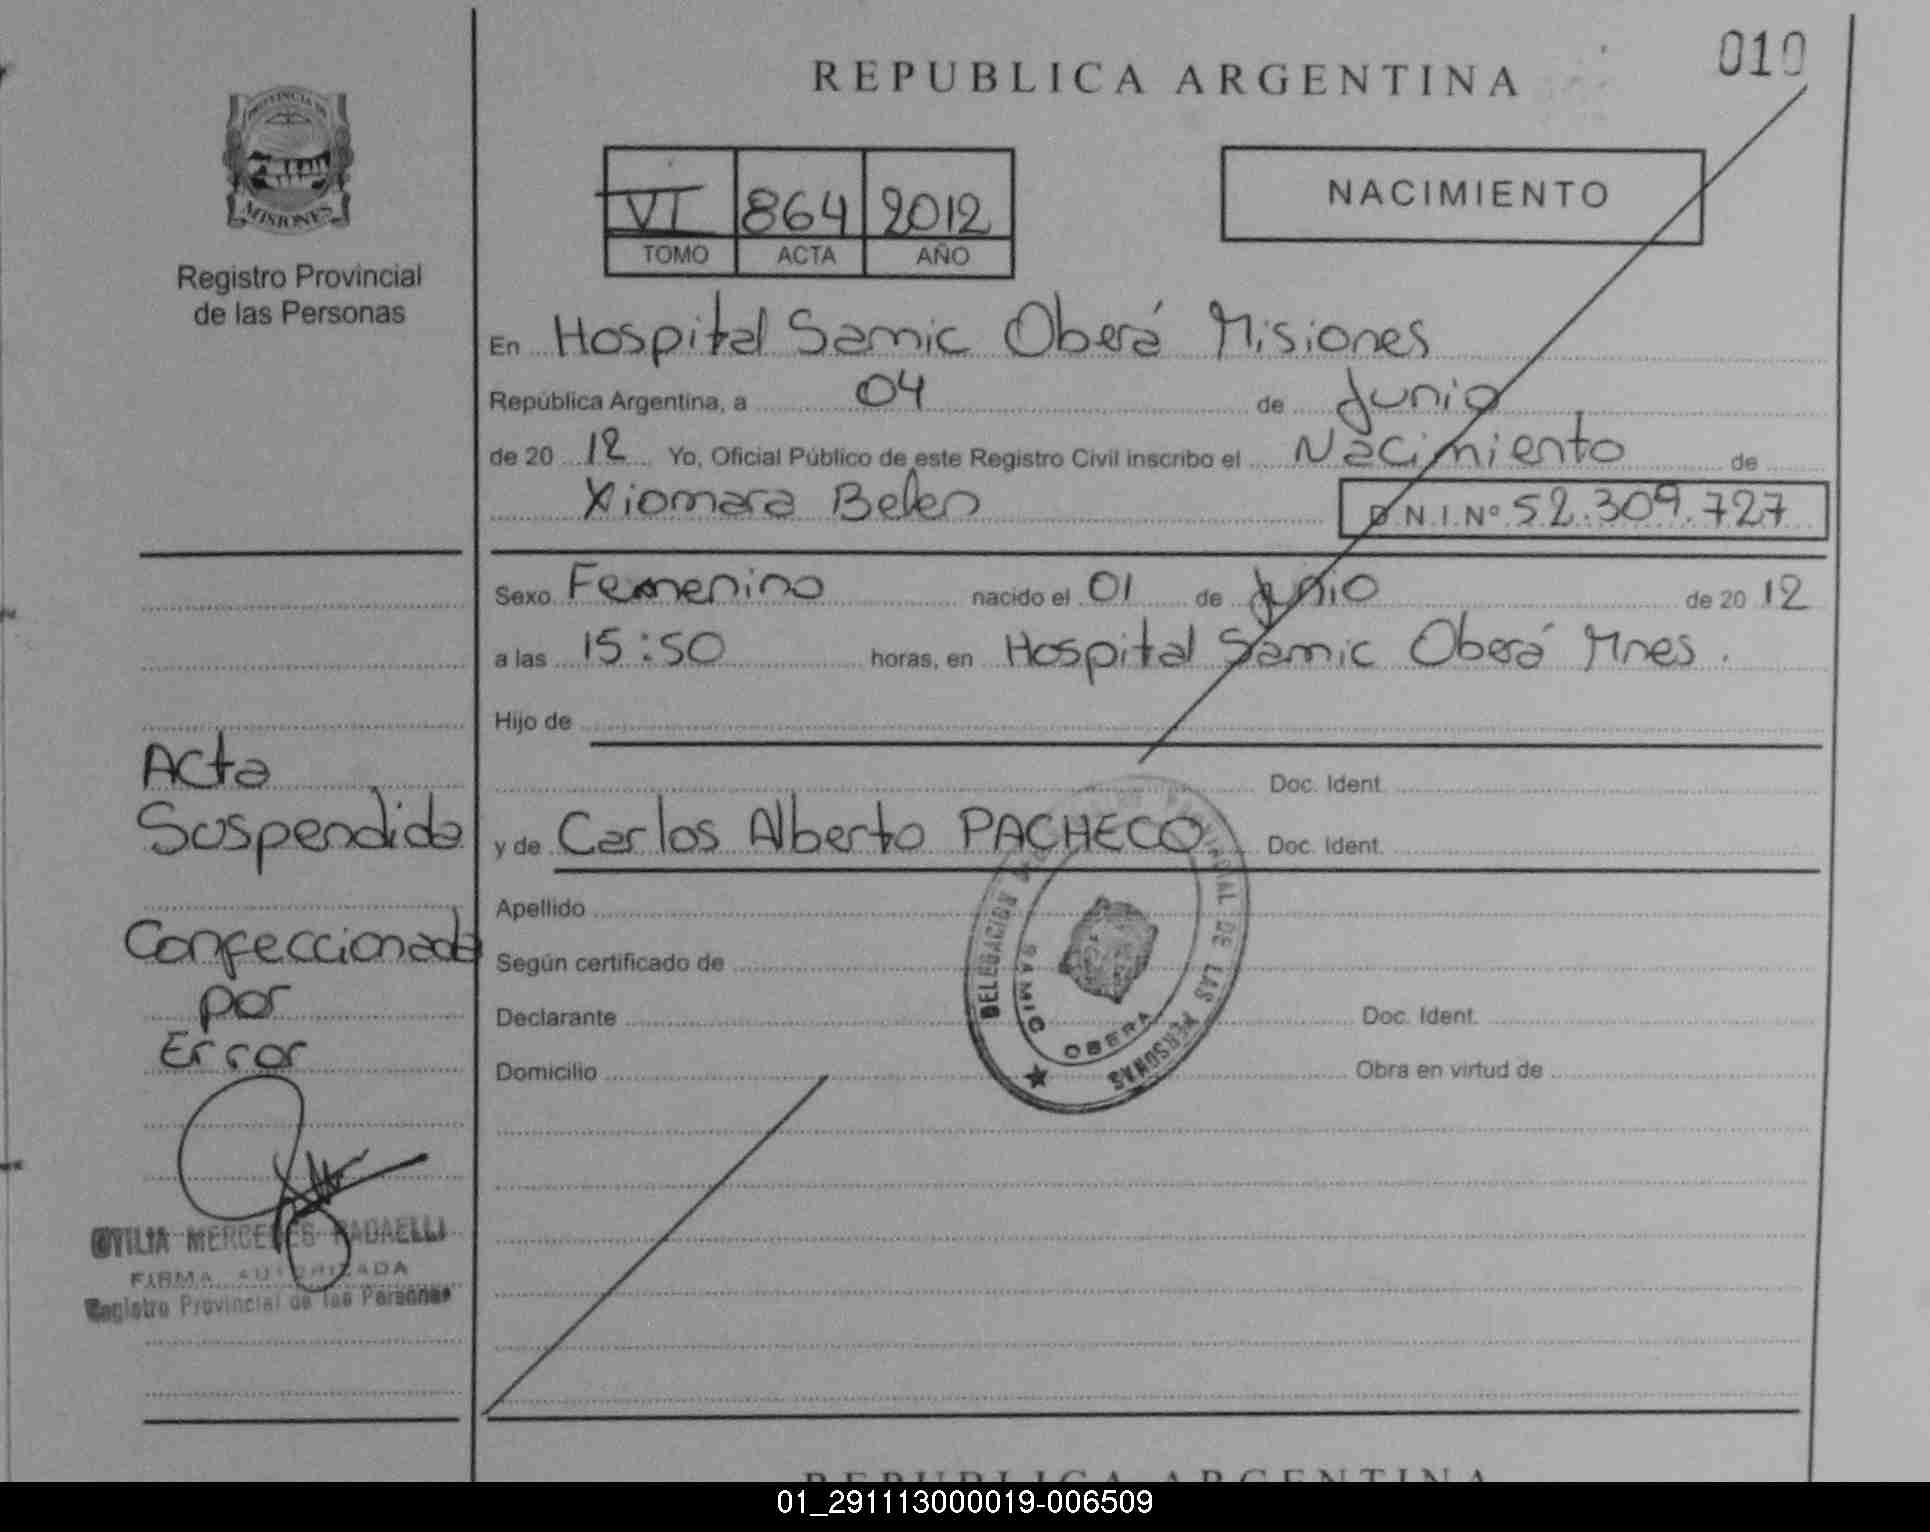 010
REPUBLICA ARGENTINA
PROVINCIA DE
MISIONES
Registro Provincial
de las Personas
VI 864 2012
TOMO ACTA AÑO
NACIMIENTO
En Hospital Samic Oberá Misiones
República Argentina, a 04 de Junio
de 20 12 Yo, Oficial Público de este Registro Civil inscribo el Nacimiento de
Xiomara Belen D.N.I. Nº 52.309.727
Sexo Femenino nacido el 01 de Junio de 20 12
a las 15:50 horas, en Hospital Samic Oberá Mnes.
Hijo de
Doc. Ident.
y de Carlos Alberto PACHECO Doc. Ident.
Apellido
Según certificado de
Declarante Doc. Ident.
Domicilio Obra en virtud de
DELEGACION PROVINCIAL DE LAS PERSONAS
SAMIC OBERA
Acta
Suspendida
Confeccionada
por
Error
OTILIA MERCEDES RADAELLI
FIRMA AUTORIZADA
Registro Provincial de las Personas
REPUBLICA ARGENTINA
01_291113000019-006509